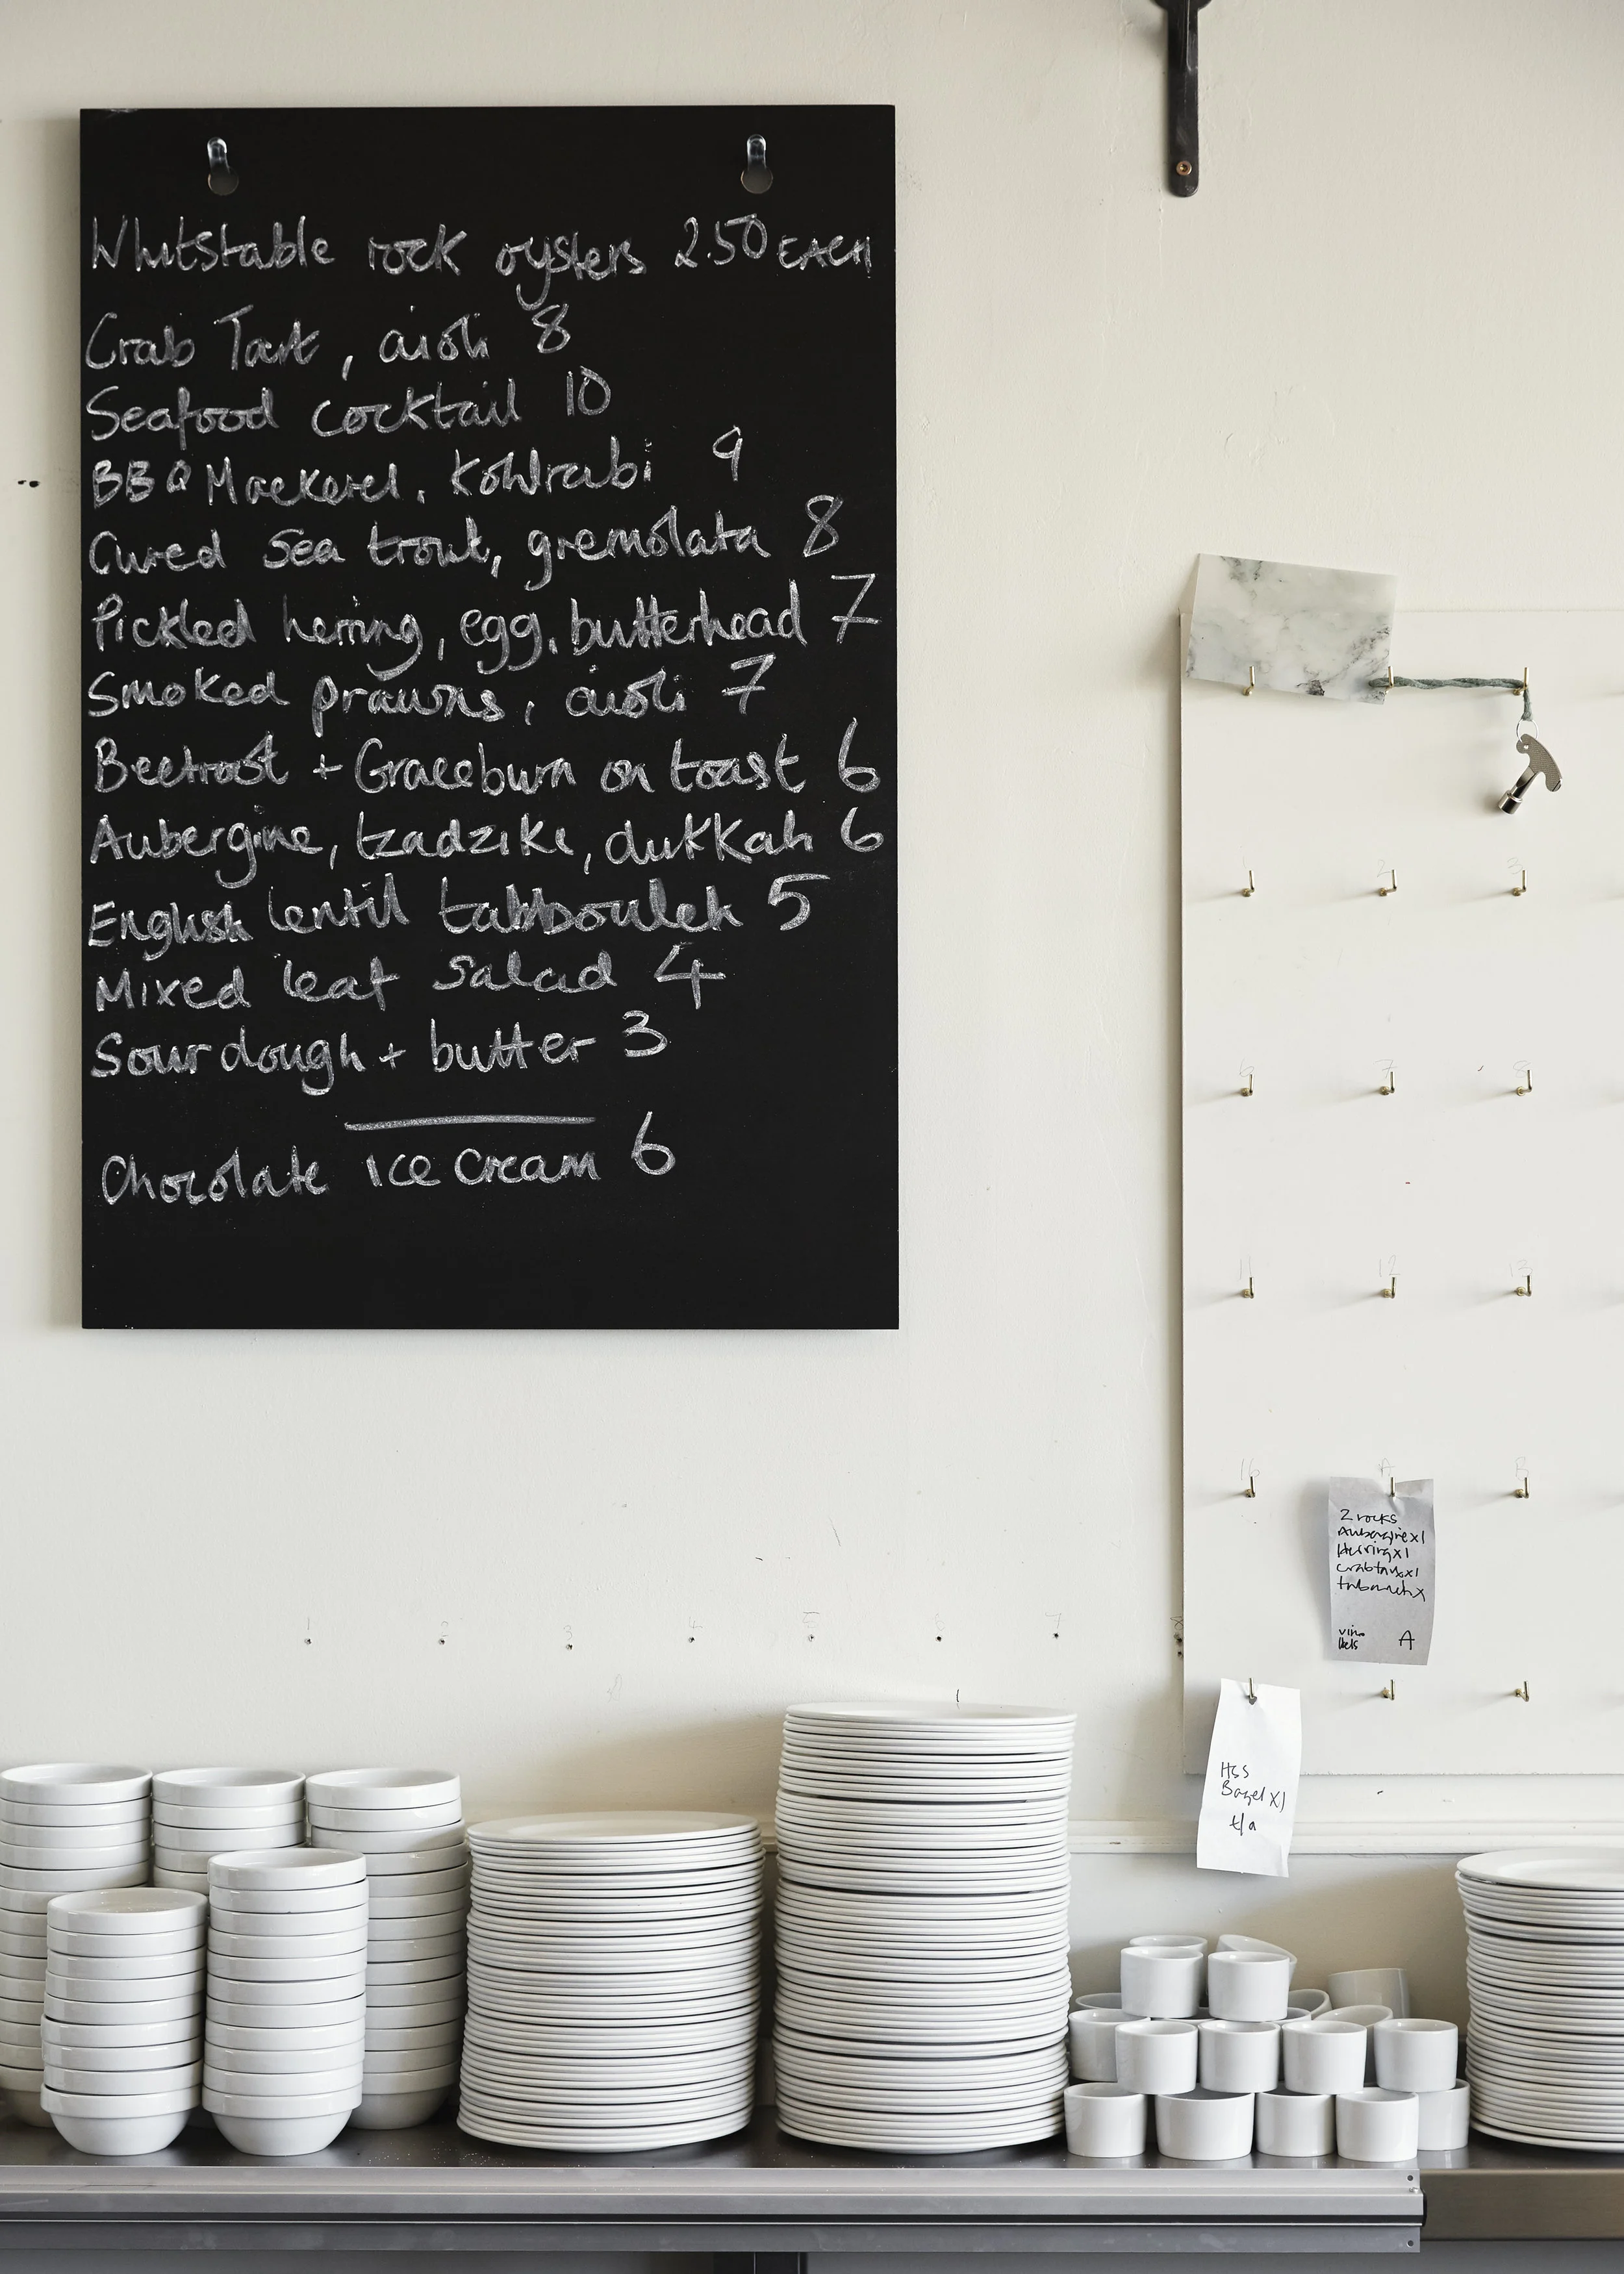 Whitstable rock oysters 2.50 EACH
Crab Tart, aioli 8
Seafood cocktail 10
BBQ Mackerel, Kohlrabi 9
Cured Sea trout, gremolata 8
Pickled herring, egg, butterhead 7
Smoked prawns, aioli 7
Beetroot + Graceburn on toast 6
Aubergine, tzadziki, dukkah 6
English lentil tabbouleh 5
Mixed leaf Salad 4
Sourdough + butter 3
Chocolate ice cream 6
1 2 3
6 7 8
11 12 13
16 A B
2 rocks
Aubergine x1
Herring x1
crab tart x1
A
1 2 3 4 5 6 7 8
HSS
Bagel x1
t/a